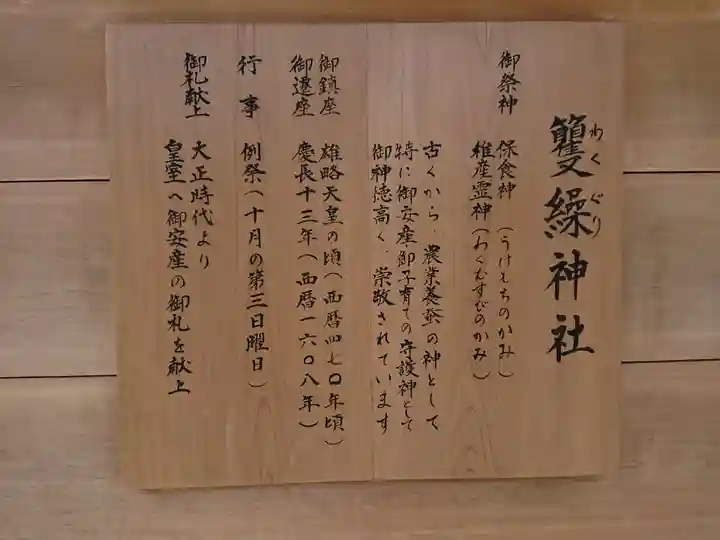 籰繰神社
わくぐり
御祭神
保食神(うけもちのかみ)
稚産霊神(わくむすびのかみ)
古くから、農業養蚕の神として
特に御安産・御子育ての守護神として
御神徳高く、崇敬されています
御鎮座 雄略天皇の頃(西暦四七〇年頃)
御遷座 慶長十三年(西暦一六〇八年)
行事 例祭(十月の第三日曜日)
御札献上 大正時代より
皇室へ御安産の御札を献上